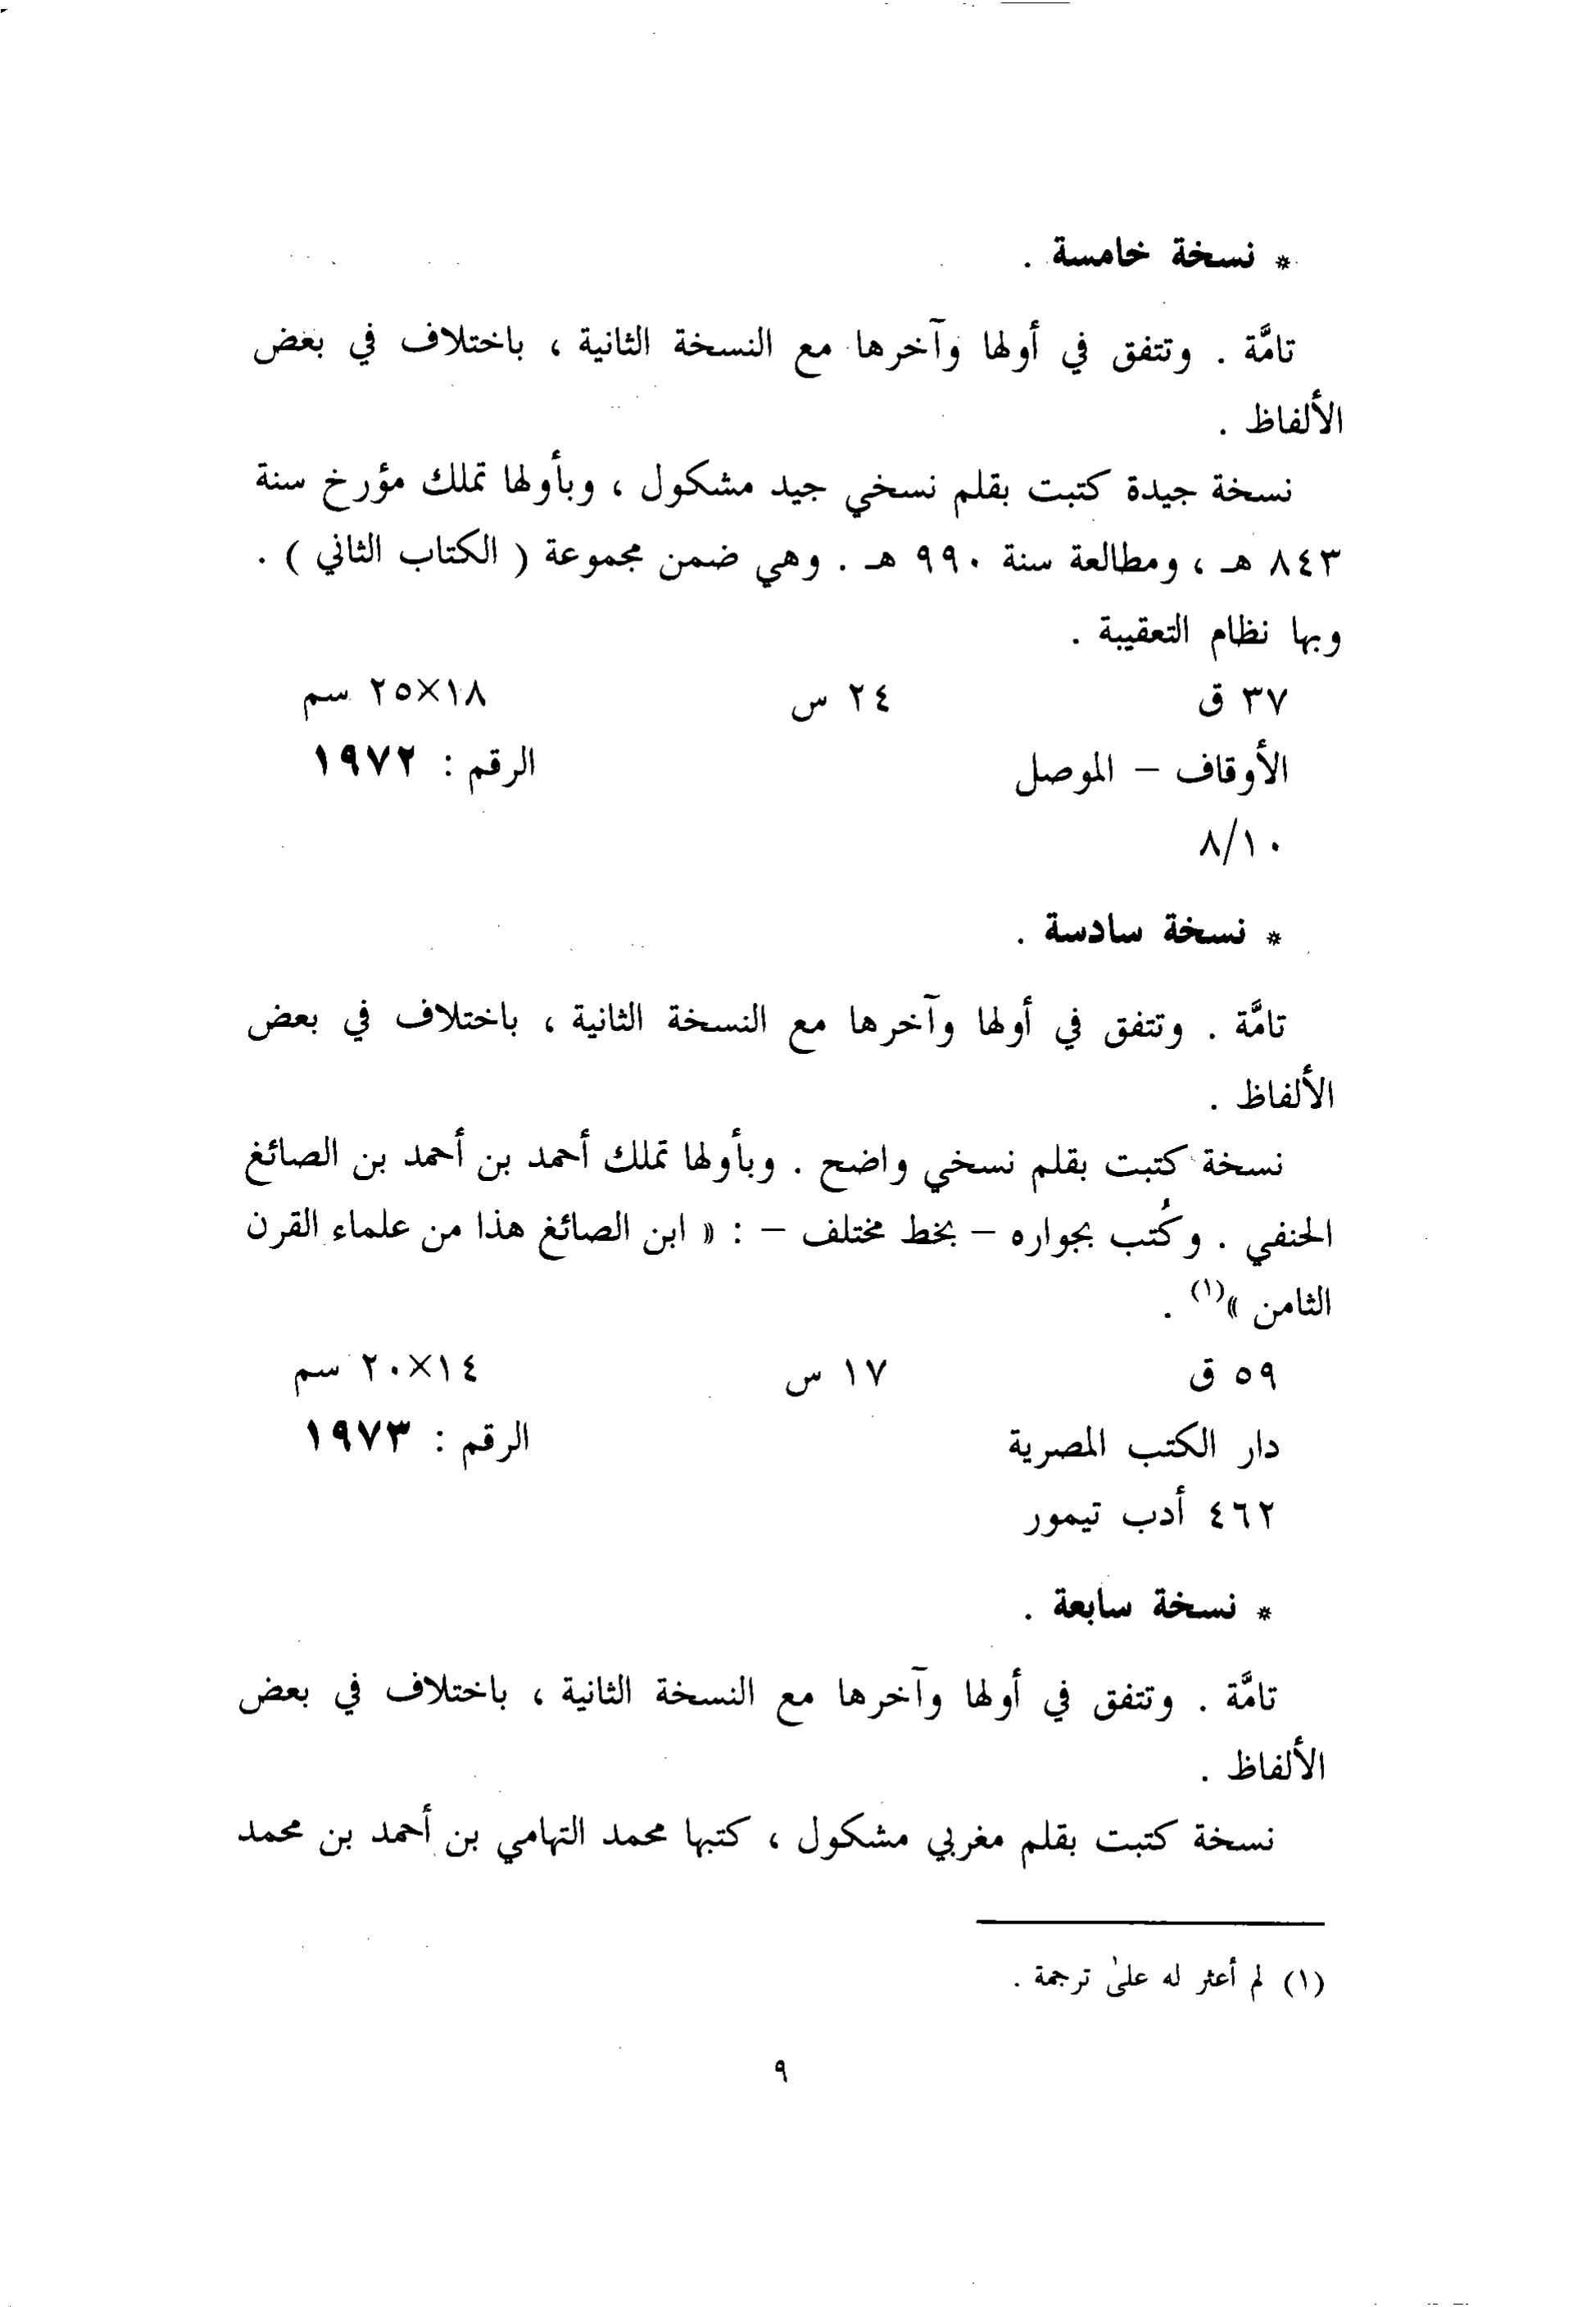 * نسخة خامسة .
تامَّة . وتتفق في أولها وآخرها مع النسخة الثانية ، باختلاف في بعض
الألفاظ .
نسخة جيدة كتبت بقلم نسخي جيد مشكول ، وبأولها تملك مؤرخ سنة
٨٤٣ هـ ، ومطالعة سنة ٩٩٠ هـ . وهي ضمن مجموعة ( الكتاب الثاني ) .
وبها نظام التعقيبة .
٣٧ ق ٢٤ س ١٨×٢٥ سم
الأوقاف – الموصل الرقم : ١٩٧٢
٨/١٠
* نسخة سادسة .
تامَّة . وتتفق في أولها وآخرها مع النسخة الثانية ، باختلاف في بعض
الألفاظ .
نسخة كتبت بقلم نسخي واضح . وبأولها تملك أحمد بن أحمد بن الصائغ
الحنفي . وكُتب بجواره – بخط مختلف – : « ابن الصائغ هذا من علماء القرن
الثامن »(١) .
٥٩ ق ١٧ س ١٤×٢٠ سم
دار الكتب المصرية الرقم : ١٩٧٣
٤٦٢ أدب تيمور
* نسخة سابعة .
تامَّة . وتتفق في أولها وآخرها مع النسخة الثانية ، باختلاف في بعض
الألفاظ .
نسخة كتبت بقلم مغربي مشكول ، كتبها محمد التهامي بن أحمد بن محمد
(١) لم أعثر له علىٰ ترجمة .
٩